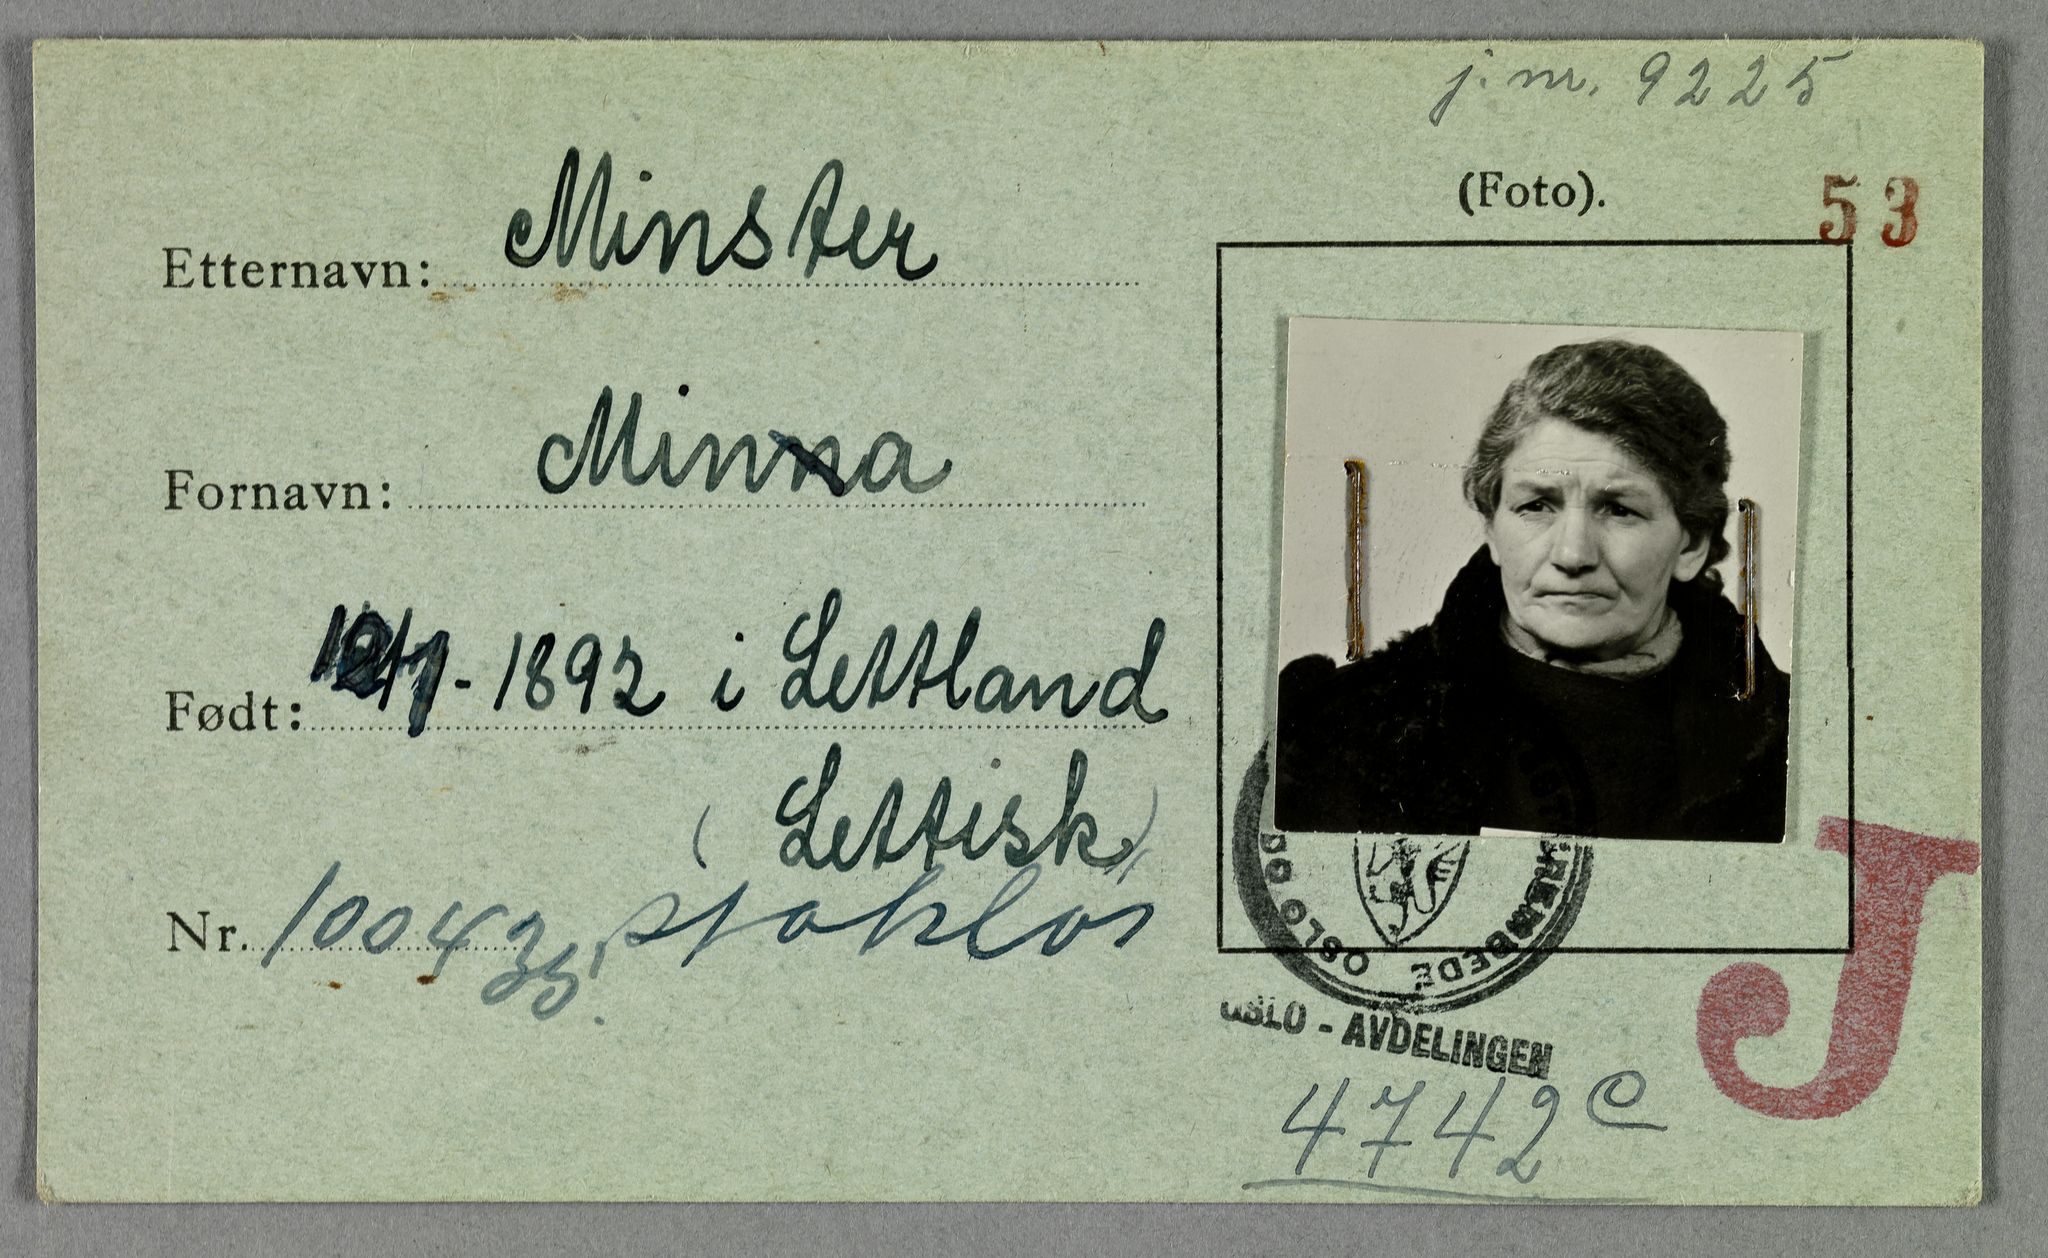 j. nr. 9225
(Foto).
53
Etternavn: Minster
Fornavn: Minna
Født: -1892 i Lettland
(Lettisk)
Nr. 10043 statsløs
OSLO
OSLO - AVDELINGEN
J
4742 e